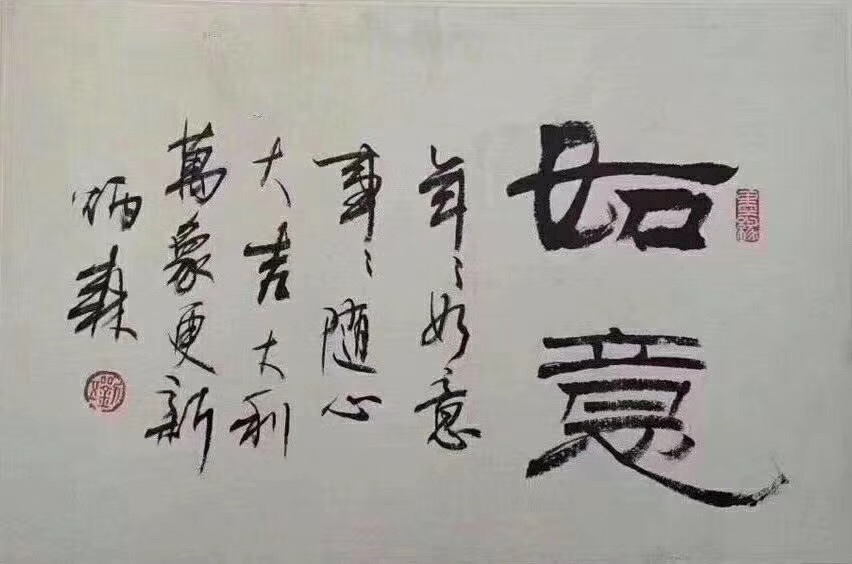 如意
年〻如意
事〻随心
大吉大利
萬象更新
炳森